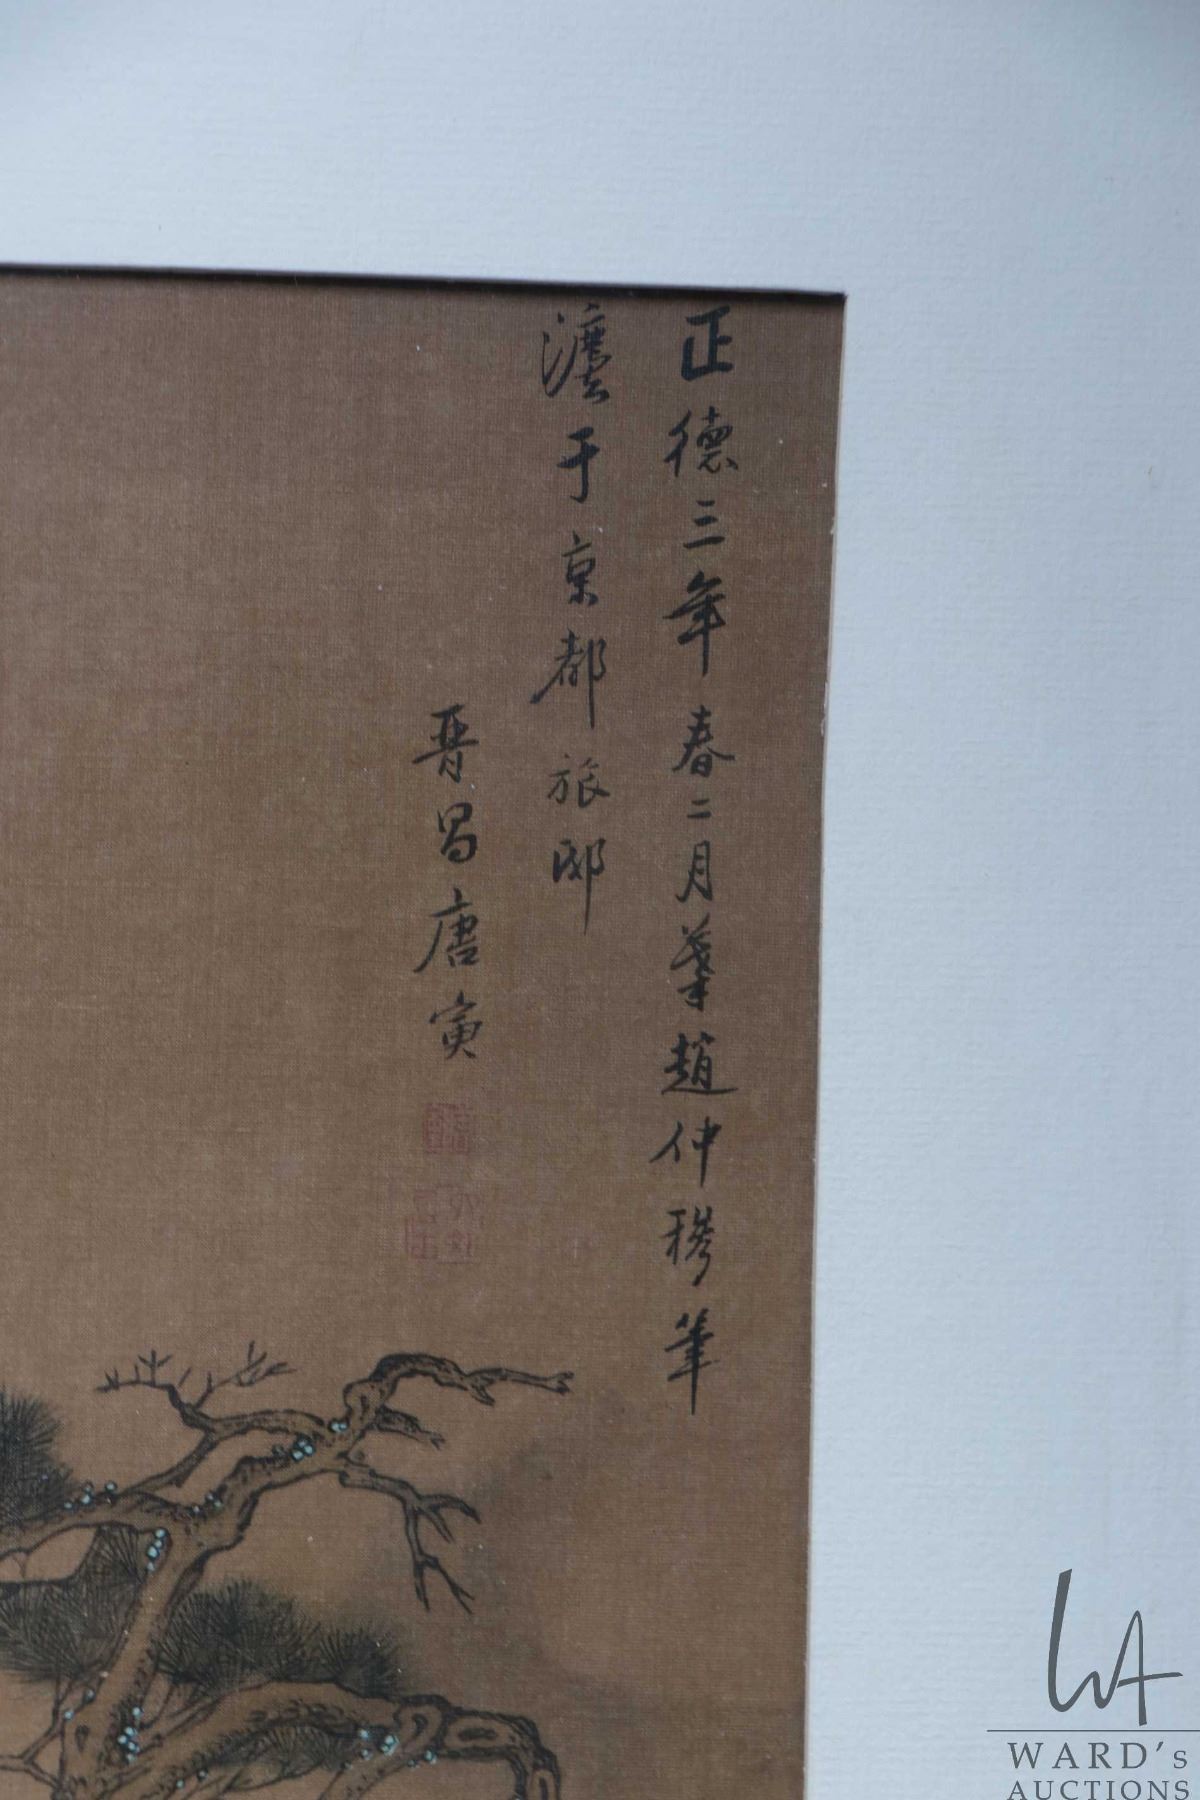 正德三年春二月摹趙仲穆筆
灋于京都旅邸
晉昌唐寅
WARD's
AUCTIONS